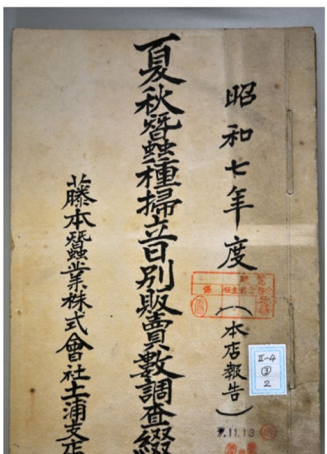 昭和七年度（本店報告）
夏秋蚕蠶種掃立日別販賣數調査綴
藤本蠶業株式會社土浦支店
II-4
③
2
7.11.13